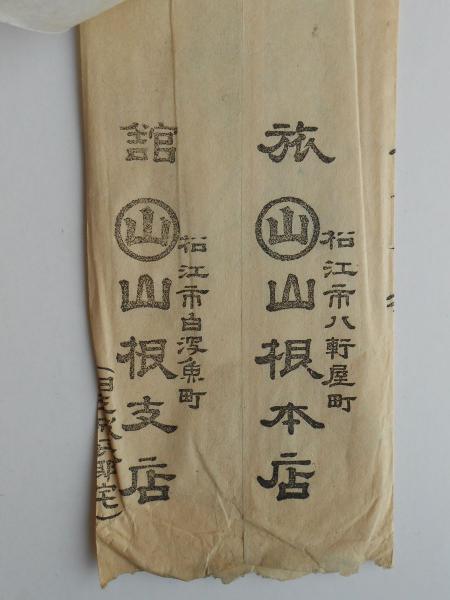 松江市八軒屋町
旅 山 山根本店
松江市白潟魚町
舘 山 山根支店
邸宅)